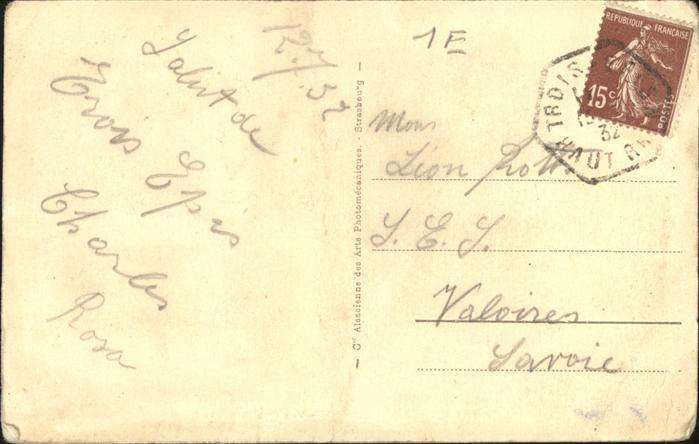 12.7.32
Salut de
Trois Epis
Charles
Rosa
Cie Alsacienne des Arts Photomécaniques. - Strasbourg
1E
Mons
Léon
S. E. S.
Valoires
Savoie
REPUBLIQUE FRANÇAISE
15c
POSTES
TROIS
32
HAUT RH